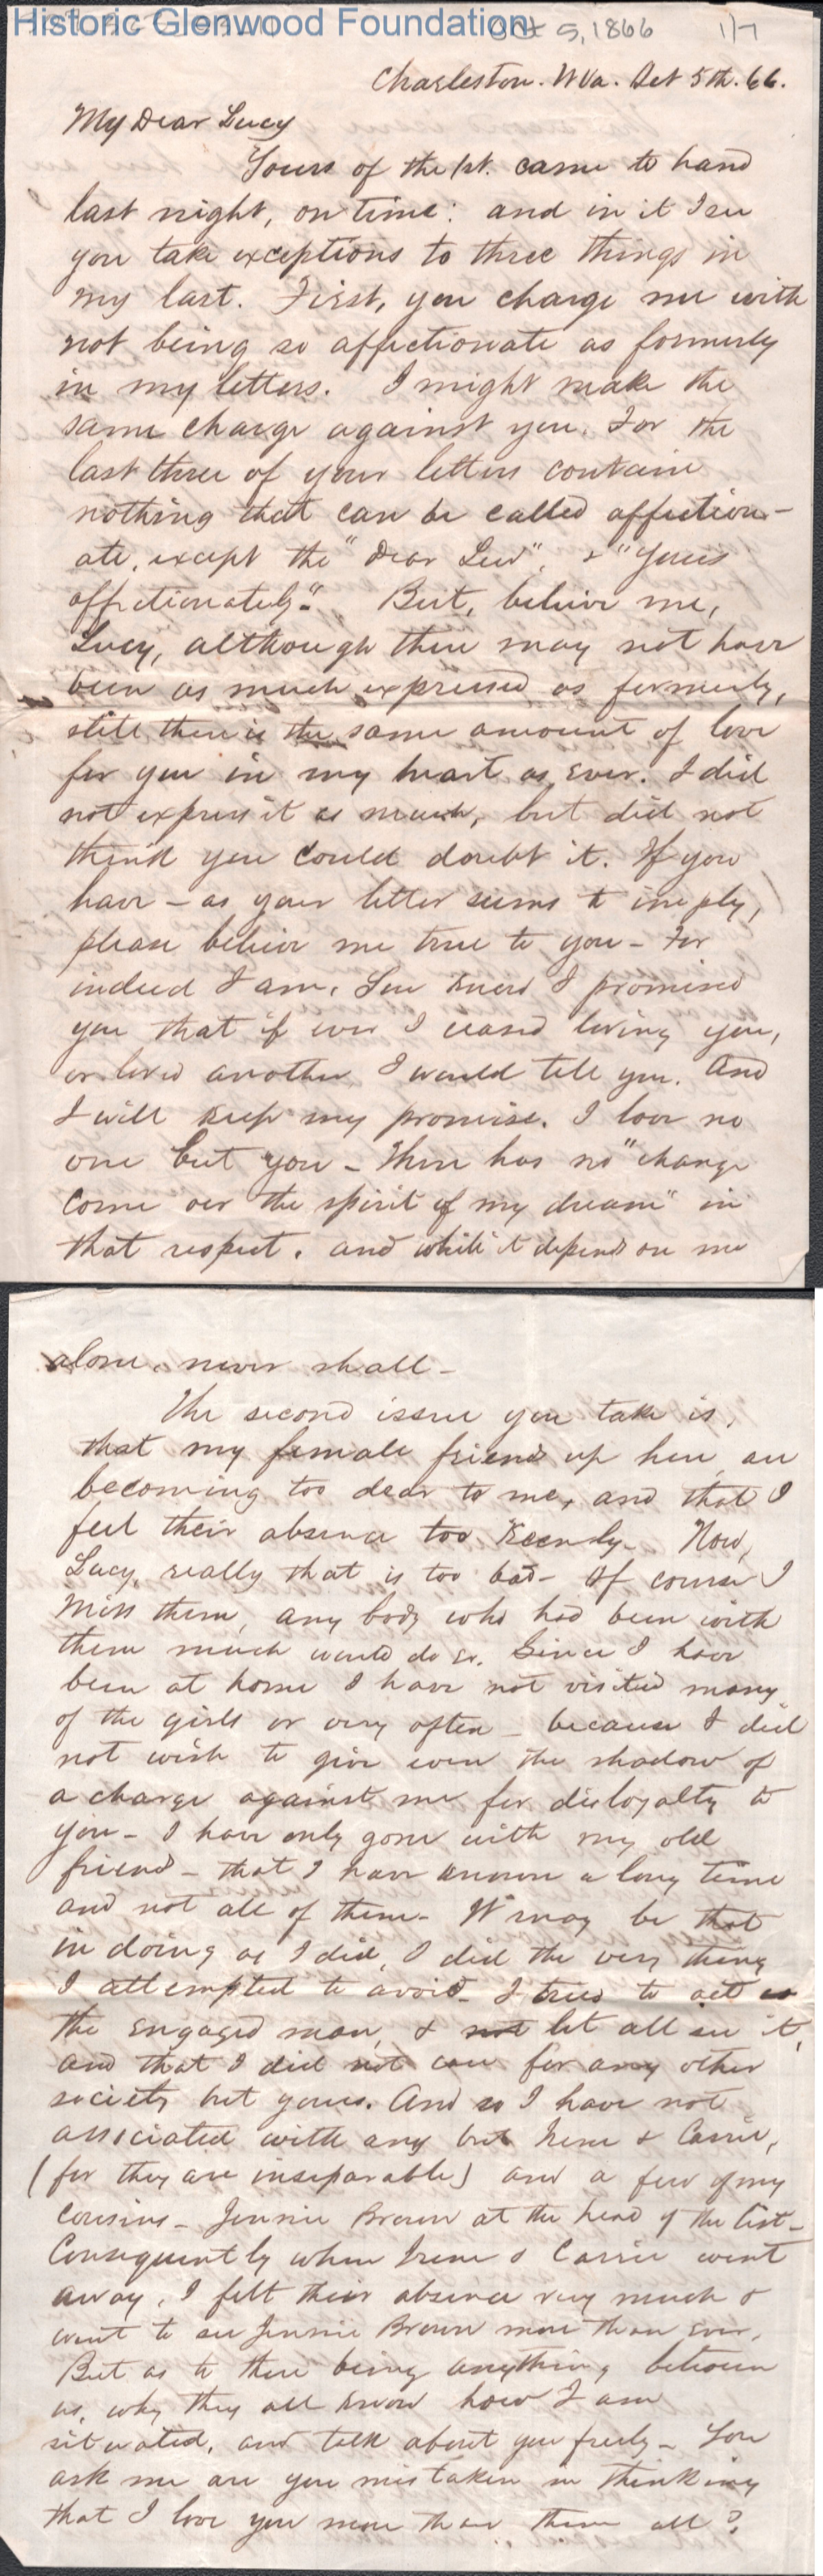 Historic Glenwood Foundation
Oct 5, 1866 1/7
Charleston. W Va. Oct 5th. 66.
My Dear Lucy
Yours of the 1st. came to hand
last night, on time: and in it I see
you take exceptions to three things in
my last. First, you charge me with
not being so affectionate as formerly
in my letters. I might make the
same charge against you. For the
last three of your letters contain
nothing that can be called affection-
ate, except the "Dear Lew", & "Yours
affectionately". But, believe me,
Lucy, although there may not have
been as much expressed as formerly,
still there is the same amount of love
for you in my heart as ever. I did
not express it as much, but did not
think you could doubt it. If you
have - as your letter seems to imply,
please believe me true to you - For
indeed I am. You know I promised
you that if ever I ceased loving you,
or loved another I would tell you. And
I will keep my promise. I love no
one but you - There has no "change
come oer the spirit of my dream" in
that respect. and while it depends on me
alone, never shall -
The second issue you take is,
that my female friends up here are
becoming too dear to me, and that I
feel their absence too keenly. Now,
Lucy, really that is too bad - Of course I
miss them, any body who had been with
them much would do so. Since I have
been at home I have not visited many
of the girls or very often - because I did
not wish to give even the shadow of
a charge against me for disloyalty to
you - I have only gone with my old
friends - that I have known a long time
and not all of them - It may be that
in doing as I did, I did the very thing
I attempted to avoid - I tried to act as
the engaged man, & let all see it,
and that I did not care for any other
society but yours. And so I have not
associated with any but Irene & Carrie,
(for they are inseparable) and a few of my
cousins - Jennie Brown at the head of the list -
Consequently when Irene & Carrie went
away, I felt their absence very much &
went to see Jennie Brown more than ever.
But as to there being anything between
us, why they all know how I am
situated, and talk about you freely - You
ask me are you mistaken in thinking
that I love you more than them all?